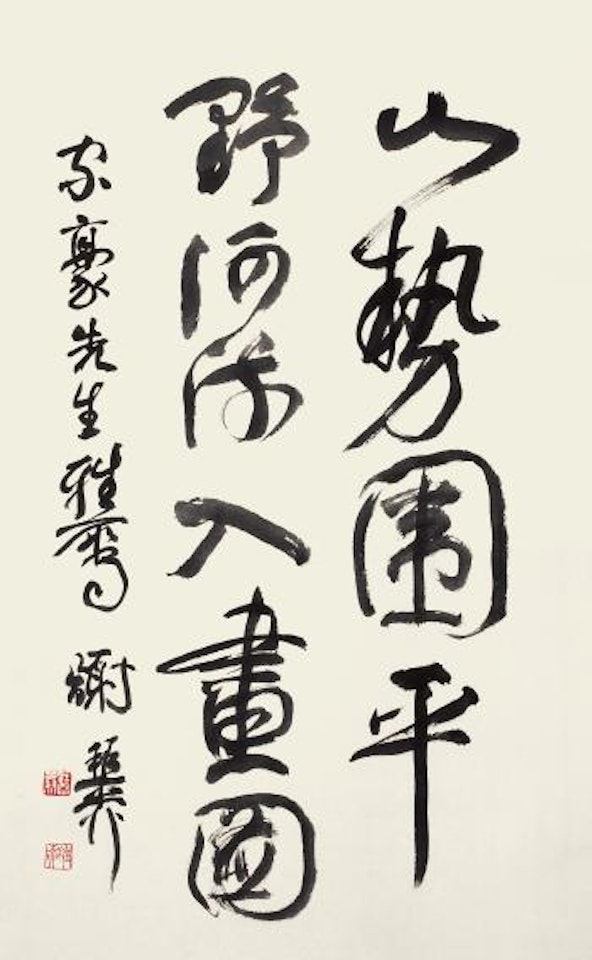 山勢圍平
野河流入畫圖
家豪先生雅屬 謝